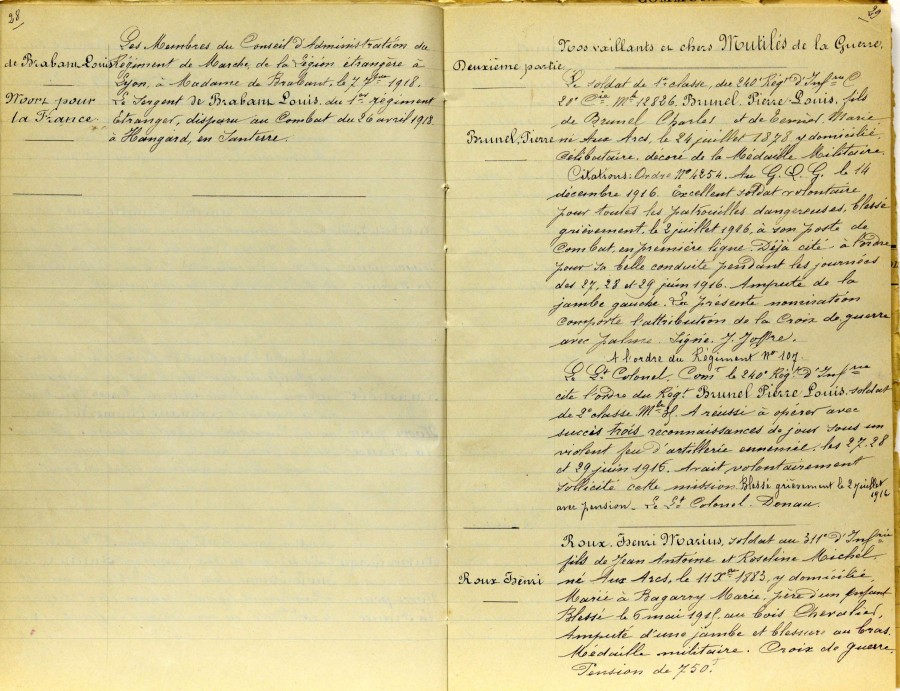 28
Les Membres du Conseil d'Administration du
de Brabant Louis Régiment de Marche, de la Légion étrangère à
Lyon, à Madame de Brabant, le 7 9bre 1918.
Mort pour Le Sergent de Brabant Louis, du 1er régiment
la France Etranger, disparu au Combat du 26 avril 1918
à Hangard, en Santerre.
29
Nos vaillants et chers Mutilés de la Guerre.
Deuxième partie
Le soldat de 1re classe, du 240e Régt d'Infrie C
20e Cie Mle 12826, Brunel, Pierre-Louis, fils
de Brunel Charles et de Marie
Brunel, Pierre né Aux Arcs, le 24 juillet 1878, y domicilié
Célibataire, décoré de la Médaille Militaire.
Citations: Ordre No 4254. Au G.Q.G. le 14
décembre 1916. Excellent soldat volontaire
pour toutes les patrouilles dangereuses, blessé
grièvement, le 2 juillet 1916, à son poste de
Combat, en première ligne. Déjà cité à l'ordre
pour sa belle conduite pendant les journées
des 27, 28 et 29 juin 1916. Amputé de la
jambe gauche. La présente nomination
comporte l'attribution de la Croix de guerre
avec palme. Signé. J. Joffre.
A l'ordre du Régiment No 107
Le Lt Colonel, Comt le 240e Régt d'Infrie
cite l'ordre du Régt Brunel Pierre Louis, soldat
de 2e classe A réussi à opérer avec
succès trois reconnaissances de jour sous un
violent feu d'artillerie ennemie, les 27, 28
et 29 juin 1916. Avait volontairement
sollicité cette mission. Blessé grièvement le 2 juillet 1916
avec pension. Le Lt Colonel. Donau.
Roux, Henri Marius, soldat au 311e d'Infrie
fils de Jean Antoine et Roseline Michel
Roux Henri né Aux Arcs, le 11 Xbre 1883, y domicilié
Marié à Bagarry Marie, père d'un enfant
Blessé le 5 mai 1915, au bois Chevalier,
Amputé d'une jambe et blessure au bras.
Médaille militaire. Croix de guerre.
Pension de 750f